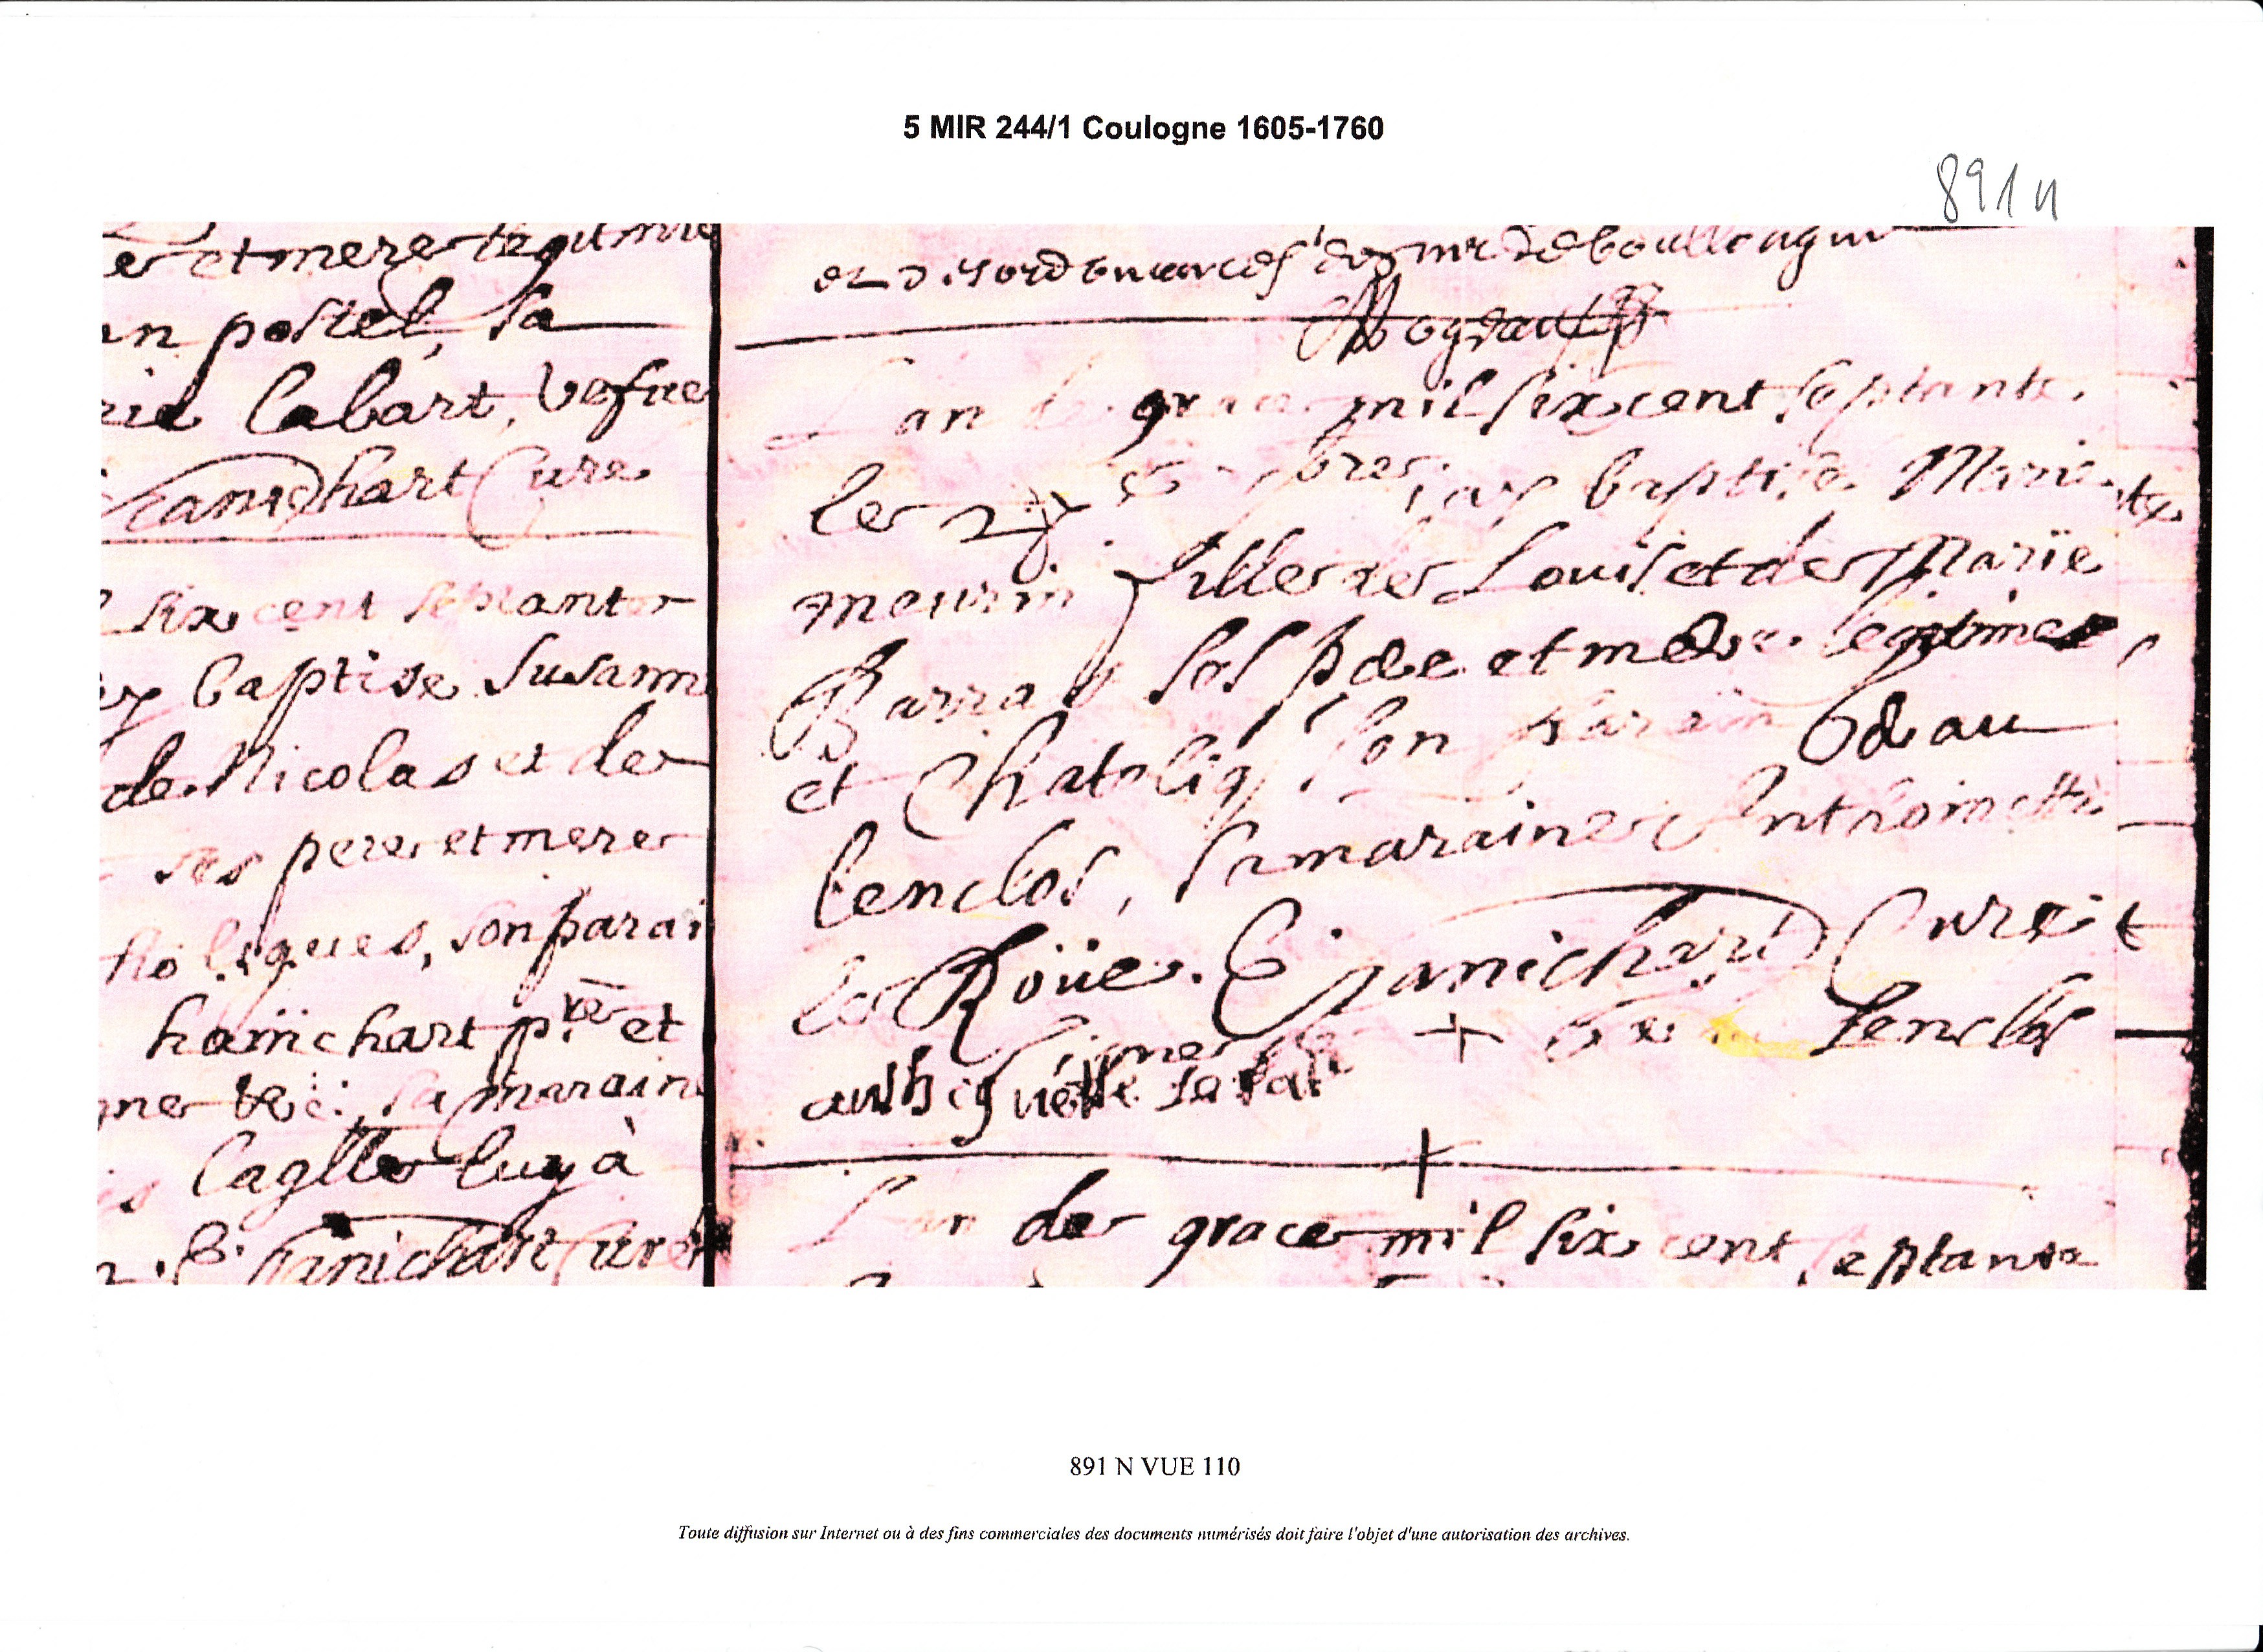 5 MIR 244/1 Coulogne 1605-1760
891 N
et mere legitime
postel, sa
labart, vefue
hanichart Cure
six cent septante
baptise Susann
de Nicolas et de
ses pere et mere
liques, son parai
hanichart p.re et
sa marain
Caglle luy à
hanichart Cure
et des ordonnances de mr de boullongne
L an de grace mil six cent septante
le 27 bre iay baptise Marie
meurin fille de Louis et de Marie
Barra ses pere et mere legitimes,
et Chatoliq son parain Odeau
lenclos, sa maraine Anthoinette
le Roüe. hanichart Cure it
signe + lenclos
L an de grace mil six cent septante
891 N VUE 110
Toute diffusion sur Internet ou à des fins commerciales des documents numérisés doit faire l'objet d'une autorisation des archives.